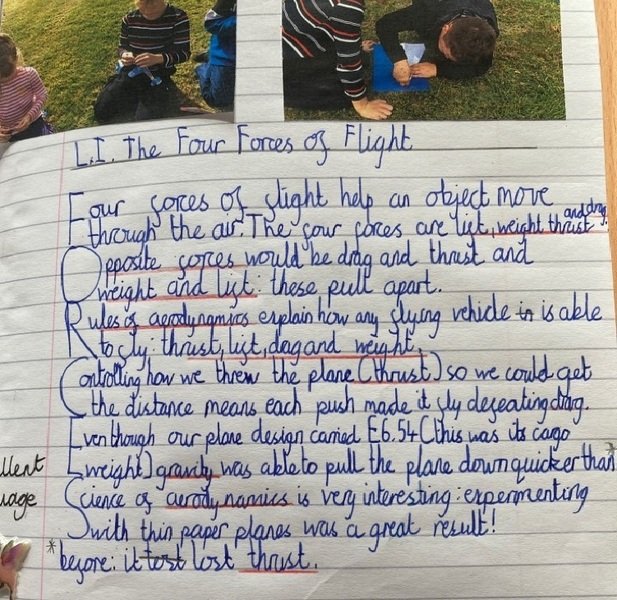 L.I. The Four Forces of Flight
Four forces of flight help an object move
through the air. The four forces are lift, weight thrust and drag.
Opposite forces would be drag and thrust and
weight and lift: these pull apart.
Rules of aerodynamics explain how any flying vehicle in is able
to fly: thrust, lift, drag and weight.
Controlling how we threw the plane (thrust) so we could get
the distance means each push made it fly defeating drag.
Even though our plane design carried £6.54 (this was its cargo
weight) gravity was able to pull the plane down quicker than*
Science of aerodynamics is very interesting: experimenting
with thin paper planes was a great result!
*before: it lost thrust.